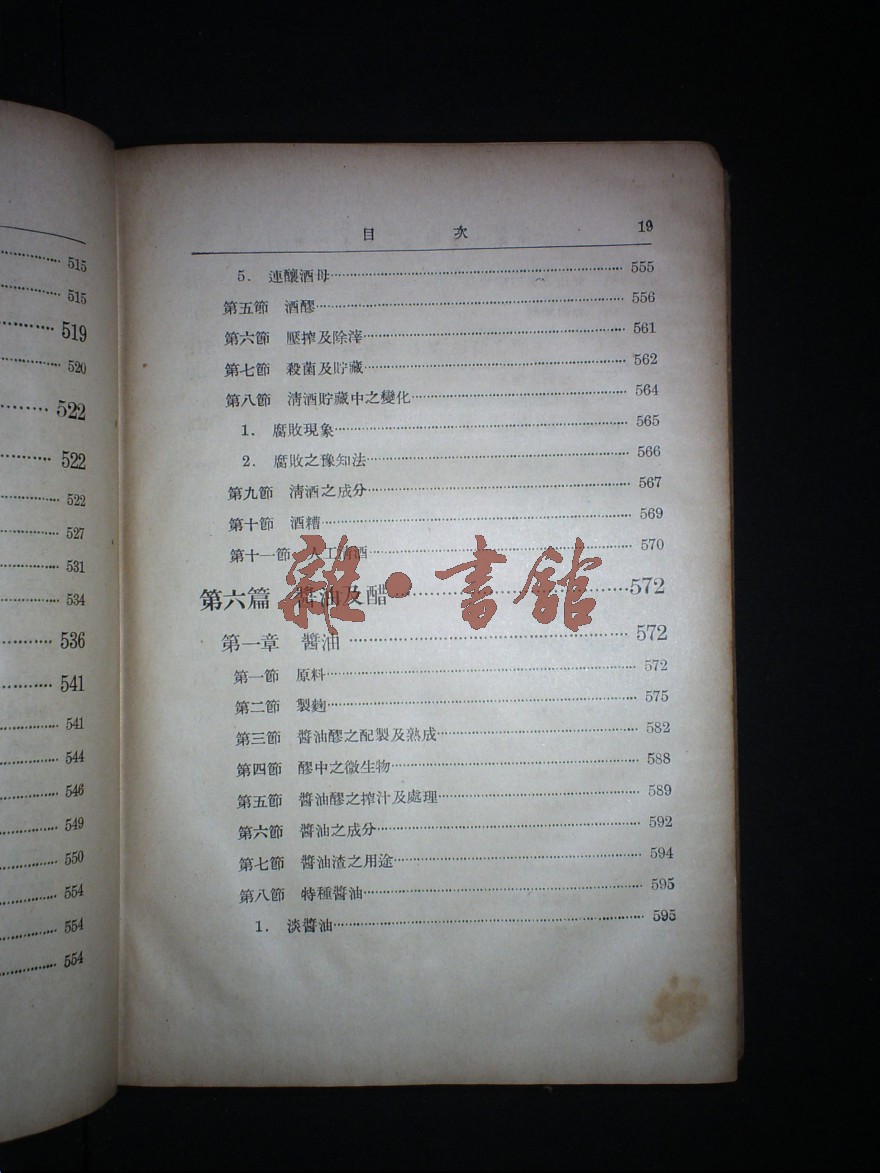 515
515
519
520
522
522
522
527
531
534
536
541
541
544
546
549
550
554
554
554
目 次 19
5. 連釀酒母 555
第五節 酒醪 556
第六節 壓搾及除滓 561
第七節 殺菌及貯藏 562
第八節 清酒貯藏中之變化 564
1. 腐敗現象 565
2. 腐敗之豫知法 566
第九節 清酒之成分 567
第十節 酒糟 569
第十一節 人工清酒 570
第六篇 醬油及醋 572
第一章 醬油 572
第一節 原料 572
第二節 製麴 575
第三節 醬油醪之配製及熟成 582
第四節 醪中之微生物 588
第五節 醬油醪之搾汁及處理 589
第六節 醬油之成分 592
第七節 醬油渣之用途 594
第八節 特種醬油 595
1. 淡醬油 595
雜·書舘